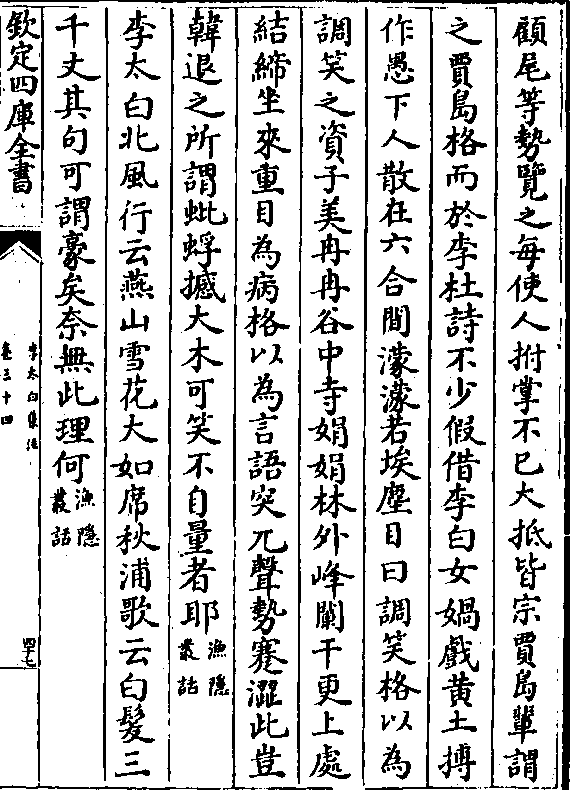 顧尾等勢覽之每使人拊掌不已大抵皆宗賈島輩謂
之賈島格而於李杜詩不少假借李白女媧戲黄土摶
作愚下人散在六合間濛濛若埃塵目曰調笑格以為
調笑之資子美冉冉谷中寺娟娟林外峰闌干更上處
結締坐來重目為病格以為言語突兀聲勢蹇澀此豈
韓退之所謂蚍蜉撼大木可笑不自量者耶漁隱叢話
李太白北風行云燕山雪花大如席秋浦歌云白髮三
千丈其句可謂豪矣奈無此理何漁隱叢話
欽定四庫全書
李太白集注
卷三十四
四七